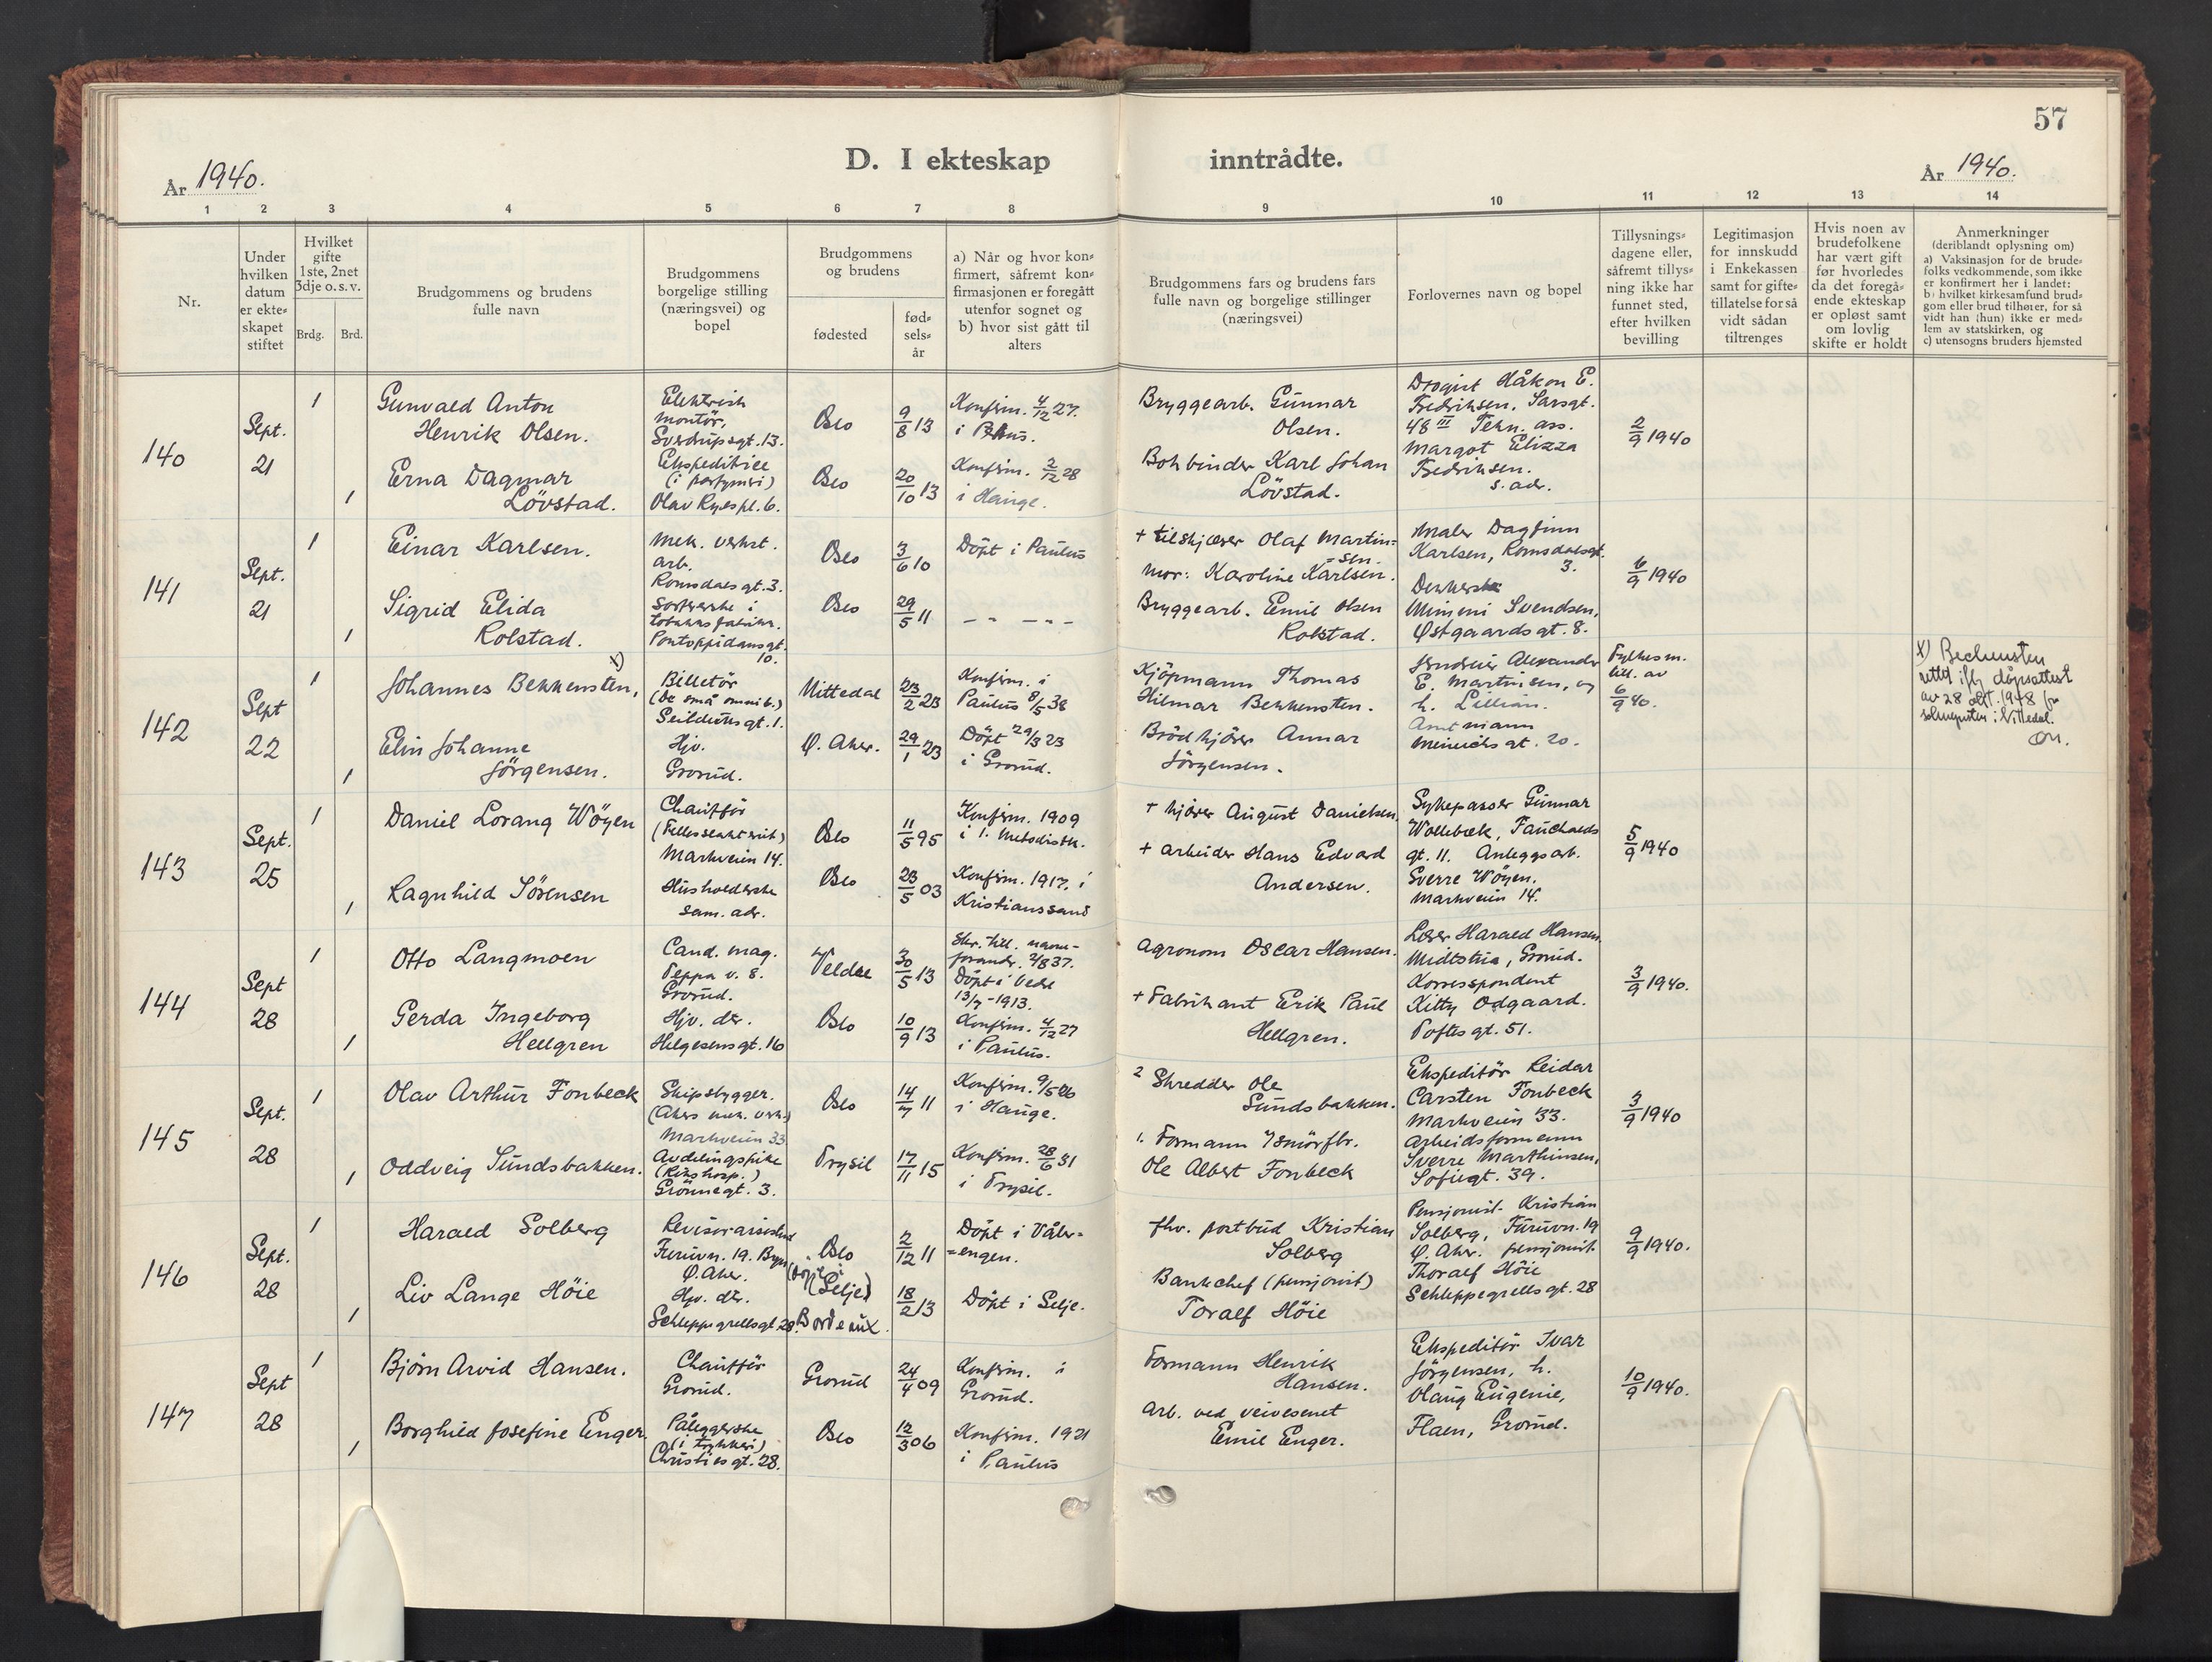 57
D. I ekteskap inntrådte.
År 1940.
År 1940.
1 2 3 4 5 6 7 8 9 10 11 12 13 14
Nr.
Under
hvilken
datum
er ekte-
skapet
stiftet
Hvilket
gifte
1ste, 2net
3dje o. s. v.
Brdg. Brd.
Brudgommens og brudens
fulle navn
Brudgommens
borgelige stilling
(næringsvei) og
bopel
Brudgommens
og brudens
fødested
fød-
sels-
år
a) Når og hvor kon-
firmert, såfremt kon-
firmasjonen er foregått
utenfor sognet og
b) hvor sist gått til
alters
Brudgommens fars og brudens fars
fulle navn og borgelige stillinger
(næringsvei)
Forlovernes navn og bopel
Tillysnings-
dagene eller,
såfremt tillys-
ning ikke har
funnet sted,
efter hvilken
bevilling
Legitimasjon
for innskudd
i Enkekassen
samt for gifte-
tillatelse for så
vidt sådan
tiltrenges
Hvis noen av
brudefolkene
har vært gift
før hvorledes
da det foregå-
ende ekteskap
er opløst samt
om lovlig
skifte er holdt
Anmerkninger
(deriblandt oplysning om)
a) Vaksinasjon for de brude-
folks vedkommende, som ikke
er konfirmert her i landet;
b) hvilket kirkesamfund brud-
gom eller brud tilhører, for så
vidt han (hun) ikke er med-
lem av statskirken, og
c) utensogns bruders hjemsted
140
Sept.
21
1
1
Gunvald Anton
Henrik Olsen.
Erna Dagmar
Lövstad.
Elektrisk
montör,
Sverdrupsgt. 13.
Ekspeditrice
(i parfymeri)
Olav Ryespl. 6.
Oslo
Oslo
9/8 13
20/10 13
Konfirm. 4/12 27.
i
Konfirm. 2/12 28
i Hauge.
Bryggearb. Gunnar
Olsen.
Bokbinder Karl Johan
Lövstad.
Drogist Håkon E.
Fredriksen, Sarsgt.
48 III Tekn. ass.
Margot Elizza
Fredriksen.
s. adr.
2/9 1940
141
Sept.
21
1
1
Einar Karlsen.
Sigrid Elida
Rolstad.
Mek. verkst.
arb.
Romsdalsgt. 3.
Sorterske i
tobakksfabrikk.
Pontoppidansgt.
10.
Oslo
Oslo
3/6 10
29/5 11
Döpt i Paulus
– – – – –
+ tilskjærer Olaf Martin-
=sen.
Mor: Karoline Karlsen.
Bryggearb. Emil Olsen
Rolstad.
Maler Dagfinn
Karlsen, Romsdalsgt.
3.
Mimmi Svendsen,
Østgaardsgt. 8.
6/9 1940
142
Sept
22
1
1
Johannes Bekkensten, x)
Elin Johanne
Jörgensen.
Billetör
(De små omnib.)
Seilduksgt. 1.
Hjv.
Grorud.
Nittedal
Ø. Aker.
23/2 23
29/1 23
Konfirm. i
Paulus 8/5 38
Döpt 29/3 23
i Grorud.
Kjöpmann Thomas
Hilmar Bekkensten.
Brödkjörer Annar
Jörgensen.
Alexander
E. Martinsen, og
h. Lillian.
Amtmann
Meinichsgt. 20.
Fylkesm.
till. av
6/9 40.
x) Bechensten
rettet iflg dåpsattest
av 28 okt. 1948 fra
sokneprsten i Nittedal.
143
Sept.
25
1
1
Daniel Lorang Wöyen
Ragnhild Sörensen
Chaufför
Markveien 14.
Husholderske
sam. adr.
Oslo
Oslo
11/5 95
23/5 03
Konfirm. 1909
i 1. Metodistk.
Konfirm. 1917. i
Kristianssand
+ kjörer August Danielsen
+ arbeider Hans Edvard
Andersen.
Sykepasser Gunnar
Wollebæk, Fauchalds
gt. 11. Anleggsarb.
Sverre Wöyen.
Markveien 14.
5/9 1940
144
Sept
28
1
1
Otto Langmoen
Gerda Ingeborg
Hellgren
Cand. mag.
Teppa v. 8.
Grorud.
Hjv. dtr.
Helgesensgt. 16
Veldre
Oslo
30/5 13
10/9 13
Skr. till. navne-
forandr. 2/8 37.
Döpt i Veldre
13/7-1913.
Konfirm. 4/12 27
i Paulus.
Agronom Oscar Hansen.
+ Fabrikant Erik Paul
Hellgren.
Lærer Harald Hansen
Midtstua, Grorud.
Korrespondent
Kitty Odgaard.
Toftesgt. 51.
3/9 1940.
145
Sept.
28
1
1
Olav Arthur Fonbeck
Oddveig Sundsbakken.
Skipsbygger.
(Akers mek. verk.)
Markveien 33
Avdelingspike
(Rikshosp.)
Grönnegt. 3.
Oslo
Trysil
14/7 11
17/11 15
Konfirm. 9/5 26
i Hauge.
Konfirm. 28/6 31
i Trysil.
2 Skredder Ole
Sundsbakken.
1. Formann i smörfbr.
Ole Albert Fonbeck
Ekspeditör Reidar
Carsten Fonbeck
Markveien 33.
Arbeidsformann
Sverre Marthinsen,
Sofiegt. 39.
3/9 1940
146
Sept.
28
1
1
Harald Solberg
Liv Lange Höie
Revisorassistent
Furuvn. 19. Bryn
Ø. Aker.
Hjv. dtr.
Schleppegrellsgt. 28.
Oslo
(Döpt i
Selje)
Bordeaux.
2/12 11
18/2 13
Döpt i Våler-
=engen.
Döpt i Selje.
fhv. postbud Kristian
Solberg
Bankchef (pensjonist)
Toralf Höie
Pensjonist Kristian
Solberg, Furuvn. 19
Ø. Aker. pensjonist
Thoralf Höie
Schleppegrellsgt. 28
9/9 1940.
147
Sept
28
1
1
Bjørn Arvid Hansen.
Borghild Josefine Enger.
Chaufför
Grorud.
Påleggerske
(i trykkeri)
Christiesgt. 28.
Grorud
Oslo
24/4 09
12/3 06
Konfirm. i
Grorud.
Konfirm. 1921
i Paulus
Formann Henrik
Hansen.
Arb. ved veivesenet
Emil Enger.
Ekspeditör Ivar
Jörgensen, h.
Olaug Eugenie,
Flaen, Grorud.
10/9 1940.